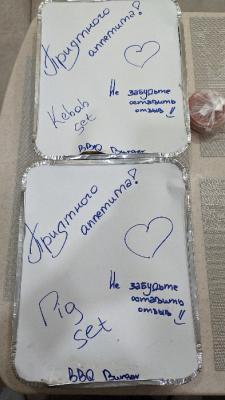 Приятного
аппетита!
Не забудьте
оставить
отзыв
Kebab
set
BBQ Burger
Приятного
аппетита!
Не забудьте
оставить
отзыв
Pig
set
BBQ Burger